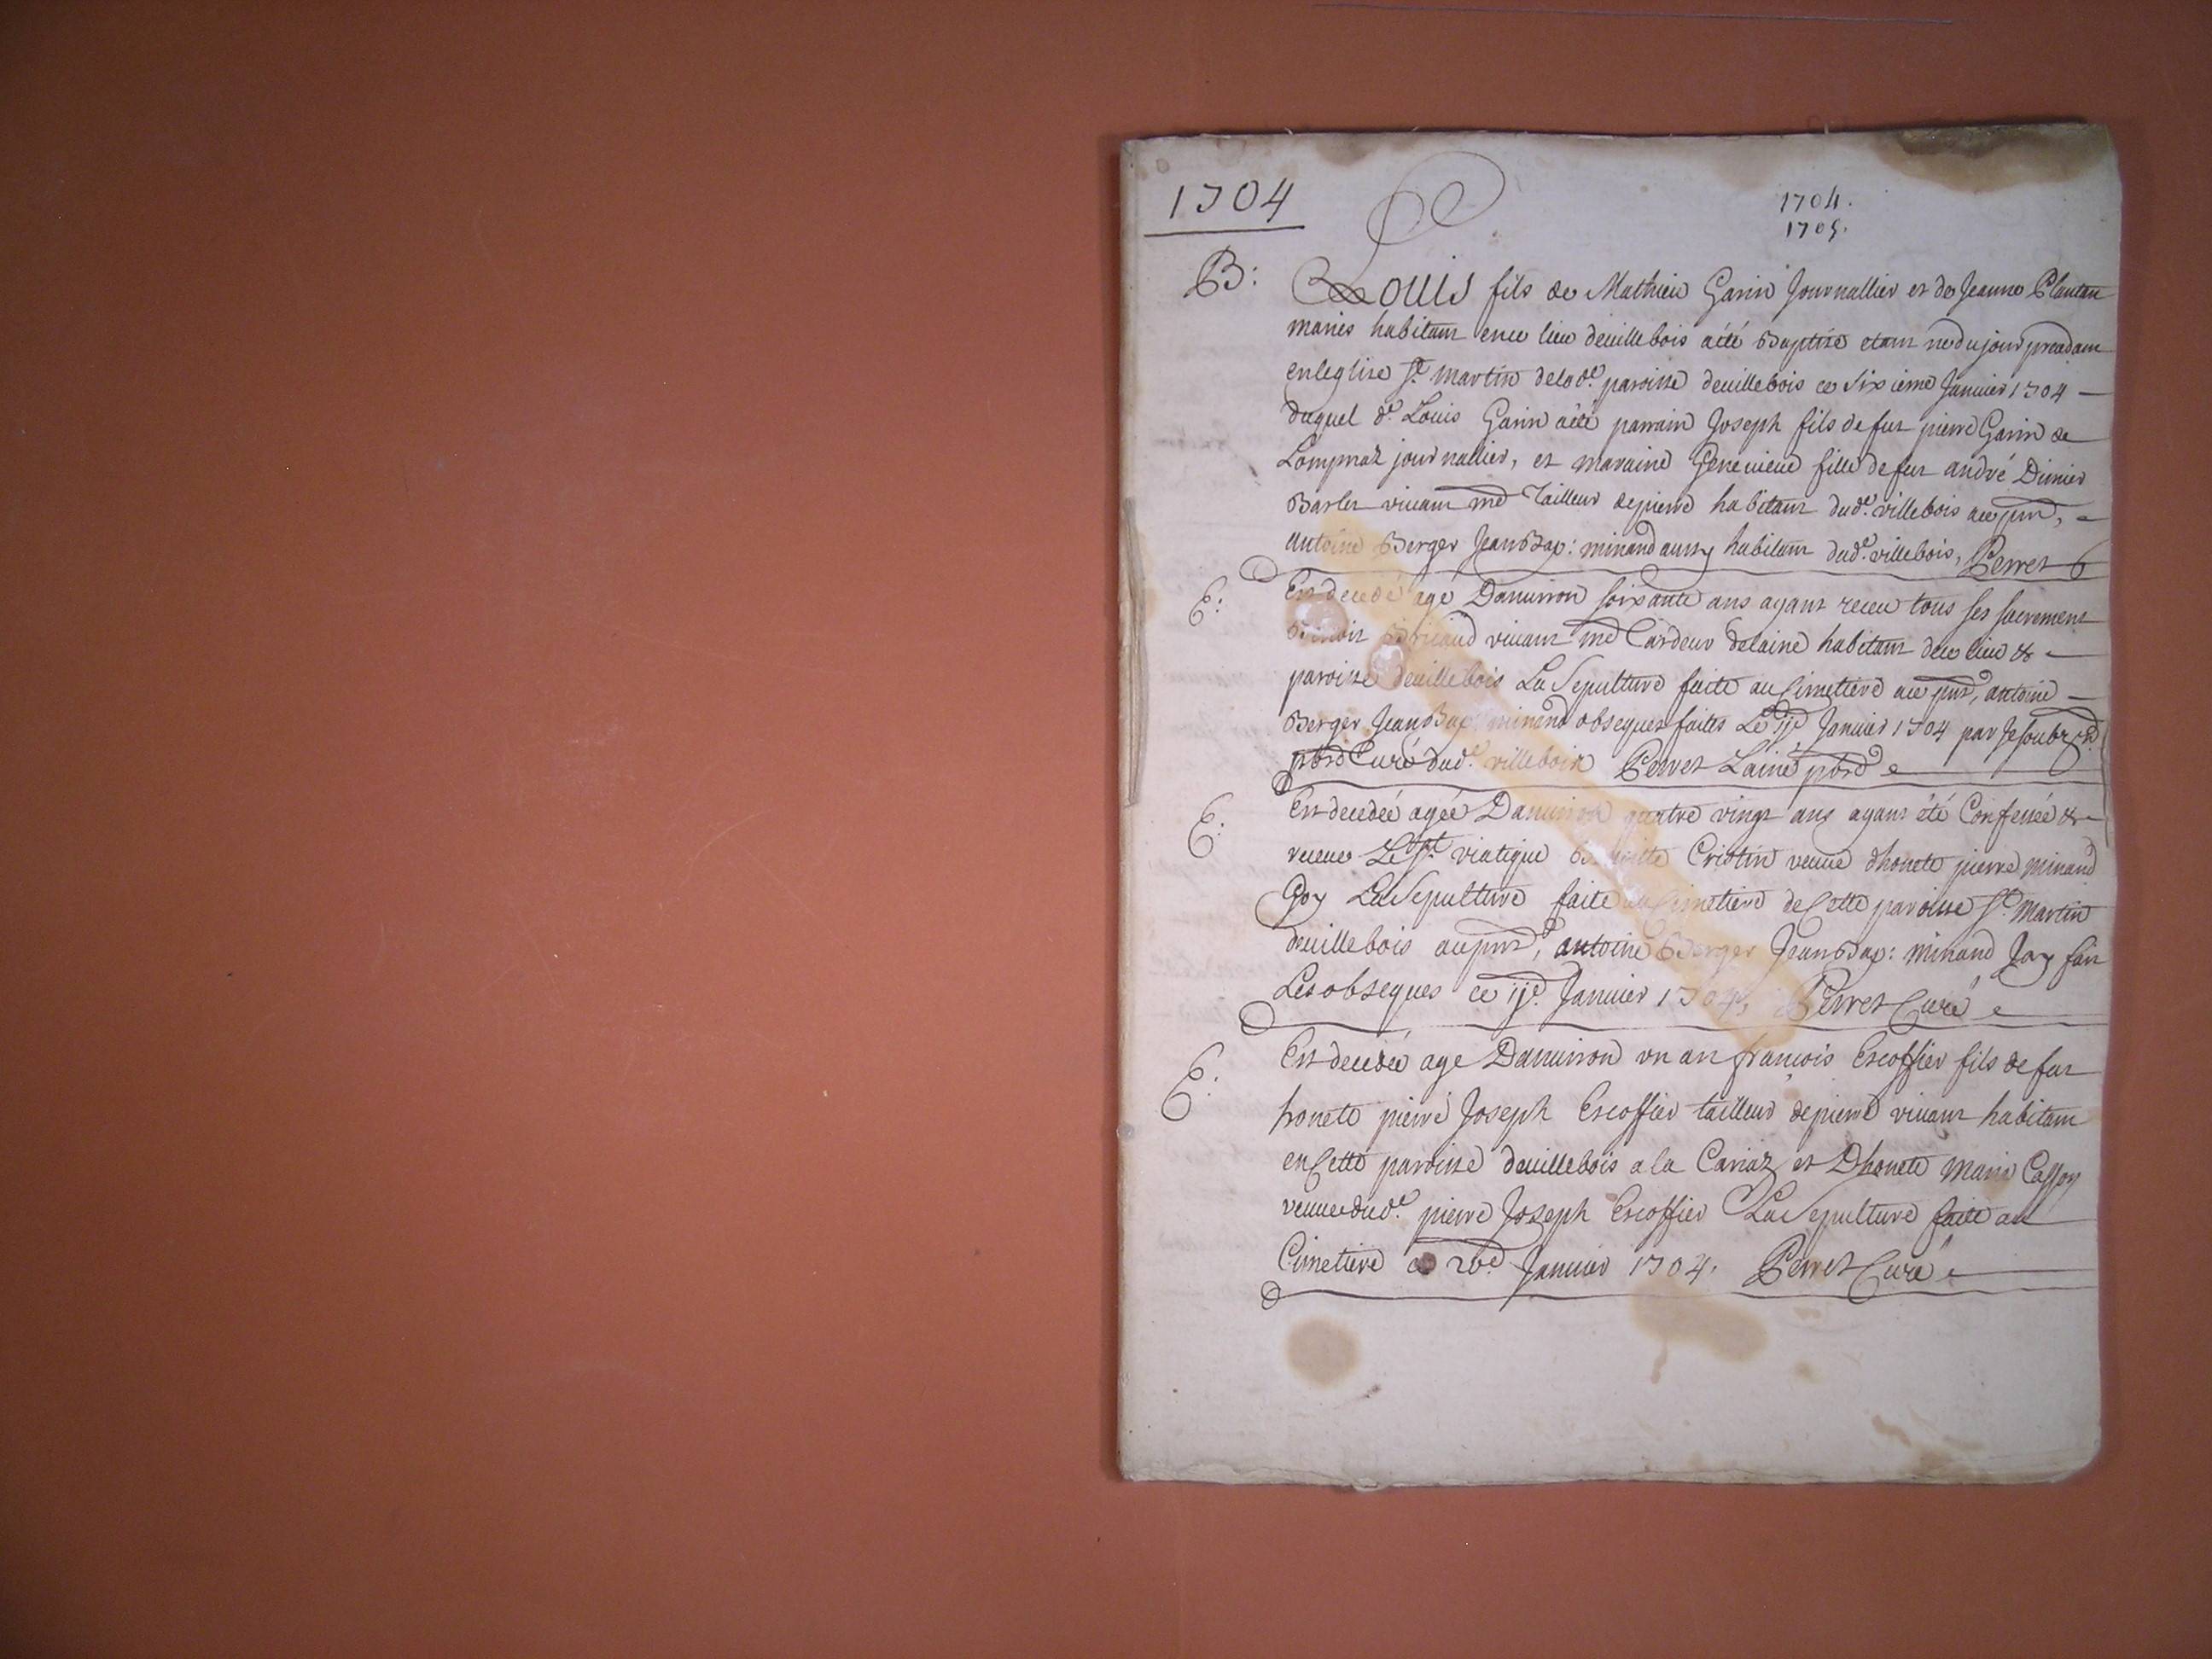 1704
1704.
1705.
B: Louis fils de Mathieu Garin Journallier et de Jeanne Plantan
mariés habitant en ce lieu deuillebois aété Baptisé etant né du jour precedam
en leglise St. Martin delade. paroisse deuillebois ce sixieme Januier 1704 —
duquel de. Louis Garin aété parrain Joseph fils defut pierre Garin de
Lompnaz journallier, et maraine Geneuieue fille defut andré Dimier
uiuant md Tailleur depierre habitant dude. villebois aux pnts,
antoine Berger Jean Bap: minand aussy habitant dude. villebois, Perret
E: Est decedé agé Danuiron soixante ans ayant receu tous ses sacrement
viuant md Cardeur delaine habitant dece lieu &
paroisse deuillebois La Sepulture faite au Cimetiere aux pnts, antoine
Berger Jean Bap: minand obseques faites Le ije Januier 1704 par Je soubzné
pbre Curé dude. villebois Perret Lainé pbre
E: Est decedée agée Danuiron quatre vingt ans ayant été Confessée &
receue Le St. viatique Cristin veuue dhonete pierre minand
Goy La Sepulture faite au Cimetiere de Cette paroisse St. Martin
deuillebois aux pnts, antoine Berger Jean Bap: minand Jay fait
Les obseques ce ije. Januier 1704, Perret Curé
E: Est decedé age Danuiron vn an francois Escoffier fils defut
honete pierre Joseph Escoffier tailleur depierre viuant habitant
en Cette paroisse deuillebois a la Cariaz et Dhonete Marie
veuue dude. pierre Joseph Escoffier La Sepulture faite au
Cimetiere ce Januier 1704. Perret Curé